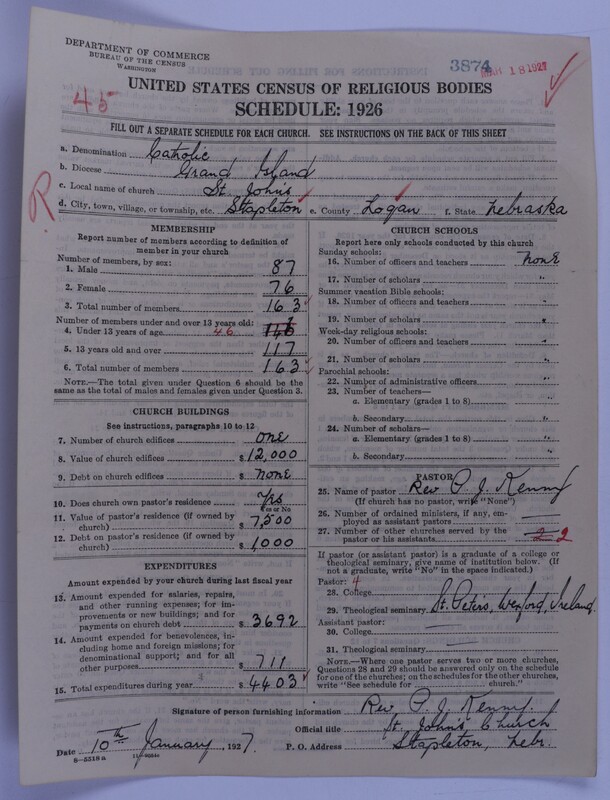 DEPARTMENT OF COMMERCE
BUREAU OF THE CENSUS
WASHINGTON
3874 MAR 18 1927
45
UNITED STATES CENSUS OF RELIGIOUS BODIES
SCHEDULE: 1926
FILL OUT A SEPARATE SCHEDULE FOR EACH CHURCH. SEE INSTRUCTIONS ON THE BACK OF THIS SHEET
a. Denomination Catholic
b. Diocese Grand Island
c. Local name of church St. John's
R
d. City, town, village, or township, etc. Stapleton e. County Logan f. State Nebraska
MEMBERSHIP
Report number of members according to definition of member in your church
Number of members, by sex:
1. Male 87
2. Female 76
3. Total number of members 163
Number of members under and over 13 years old:
4. Under 13 years of age 46
5. 13 years old and over 117
6. Total number of members 163
NOTE.—The total given under Question 6 should be the same as the total of males and females given under Question 3.
CHURCH BUILDINGS
See instructions, paragraphs 10 to 12
7. Number of church edifices one
8. Value of church edifices $ 12,000
9. Debt on church edifices $ none
10. Does church own pastor's residence Yes
Yes or No
11. Value of pastor's residence (if owned by church) $ 7,500
12. Debt on pastor's residence (if owned by church) $ 1,000
EXPENDITURES
Amount expended by your church during last fiscal year
13. Amount expended for salaries, repairs, and other running expenses; for improvements or new buildings; and for payments on church debt $ 3692
14. Amount expended for benevolences, including home and foreign missions; for denominational support; and for all other purposes $ 711
15. Total expenditures during year $ 4403
CHURCH SCHOOLS
Report here only schools conducted by this church
Sunday schools:
16. Number of officers and teachers none
17. Number of scholars "
Summer vacation Bible schools:
18. Number of officers and teachers "
19. Number of scholars "
Week-day religious schools:
20. Number of officers and teachers "
21. Number of scholars "
Parochial schools:
22. Number of administrative officers "
23. Number of teachers—
a. Elementary (grades 1 to 8) "
b. Secondary "
24. Number of scholars—
a. Elementary (grades 1 to 8) "
b. Secondary "
PASTOR
25. Name of pastor Rev P. J. Kenny
(If church has no pastor, write "None")
26. Number of ordained ministers, if any, employed as assistant pastors
27. Number of other churches served by the pastor or his assistants 2
If pastor (or assistant pastor) is a graduate of a college or theological seminary, give name of institution below. (If not a graduate, write "No" in the space indicated.)
Pastor: 4
28. College
29. Theological seminary St. Peters, Wexford, Ireland.
Assistant pastor:
30. College
31. Theological seminary
NOTE.—Where one pastor serves two or more churches, Questions 28 and 29 should be answered only on the schedule for one of the churches; on the schedules for the other churches, write "See schedule for ______ church."
Signature of person furnishing information Rev P. J. Kenny.
Official title St. John's Church
Date 10th January, 1927. P. O. Address Stapleton, Nebr.
8—5518a